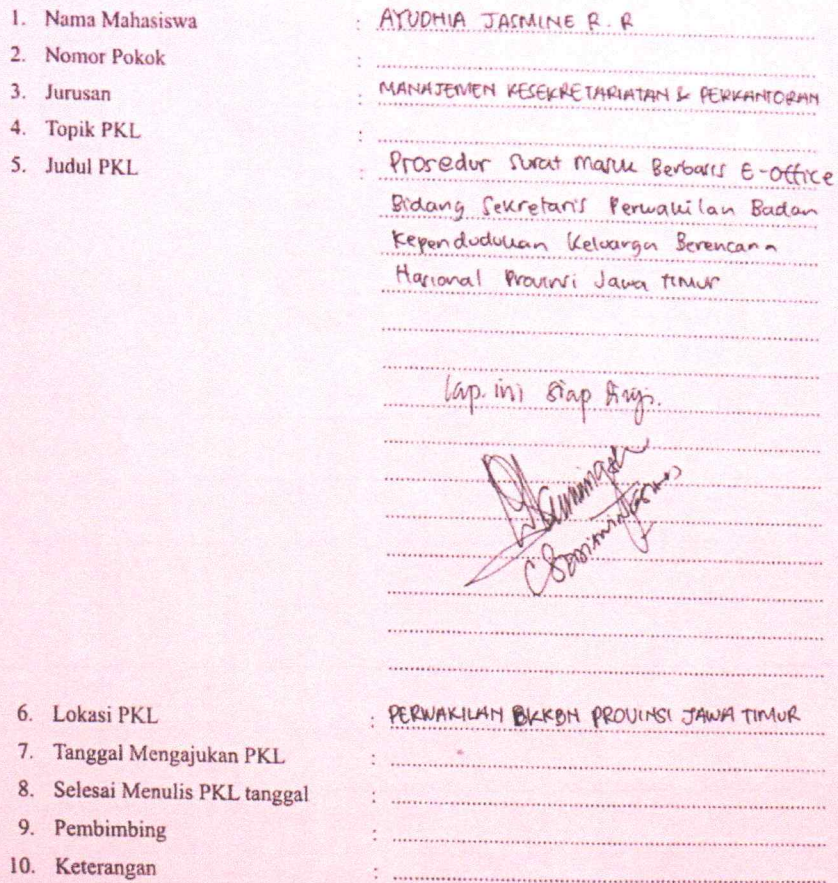 1. Nama Mahasiswa : AYUDHIA JASMINE R. R
2. Nomor Pokok :
3. Jurusan : MANAJEMEN KESEKRETARIATAN & PERKANTORAN
4. Topik PKL :
5. Judul PKL : Prosedur Surat Masuk Berbasis E-Office
Bidang Sekretaris Perwakilan Badan
Kependudukan Keluarga Berencana
Nasional Provinsi Jawa Timur
Lap. ini siap
6. Lokasi PKL : PERWAKILAN BKKBN PROVINSI JAWA TIMUR
7. Tanggal Mengajukan PKL :
8. Selesai Menulis PKL tanggal :
9. Pembimbing :
10. Keterangan :